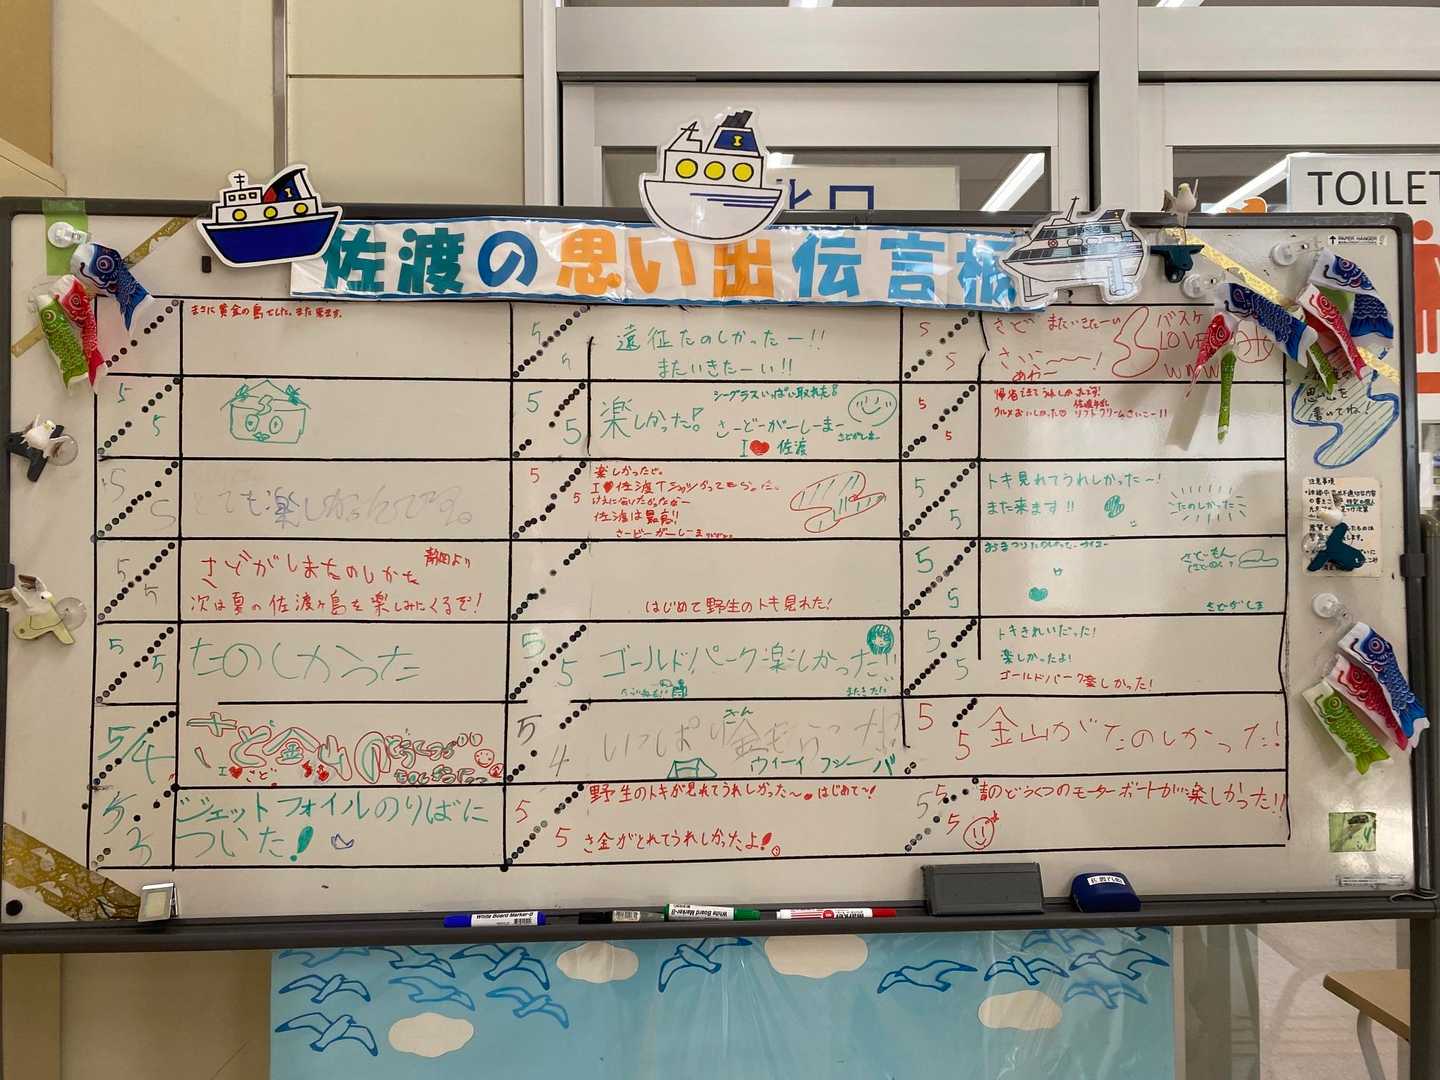 TOILET
佐渡の思い出伝言板
PAPER HANGER
まさに黄金の島でした。また来ます。
5
5
5
5
とても楽しかったです。
5
5
さどがしまたのしかた
静岡より
次は夏の佐渡ヶ島を楽しみにくるぞ！
5
5
たのしかった
5/4
さど金山のどうくつ
I さど
5
3
ジェットフォイルのりばに
ついた！
5
遠征たのしかったー!!
またいきたーい!!
5
5
シーグラスいっぱい取れた
楽しかった！
さーどーがーしーまー
さどがしまー
I 佐渡
5
5
楽しかったで。
I 佐渡Tシャツかってもらった。
佐渡は最高!!
さーどーがーしーま
はじめて野生のトキ見れた！
5
5
ゴールドパーク楽しかった!!
またきたい
5
4
いっぱい金もらった
ウィーイ フシーバ
5
5
野生のトキが見れてうれしかった〜。はじめて〜！
さ金がとれてうれしかったよ！
5
5
さど またいきたーい
バスケ
LOVE
5
5
帰省できてうれしかったです！
佐渡牛乳
グルメおいしかった ソフトクリームさいこー!!
5
5
トキ見れてうれしかった〜！
また来ます!!
たのしかった
5
5
さどがしま
5
5
トキきれいだった！
楽しかったよ！
ゴールドパーク楽しかった！
5
5
金山がたのしかった！
5
5
青のどうくつのモーターボートがに楽しかった!!
思い出を
書いてね！
注意事項
White Board Marker-B
White Board Marker-B